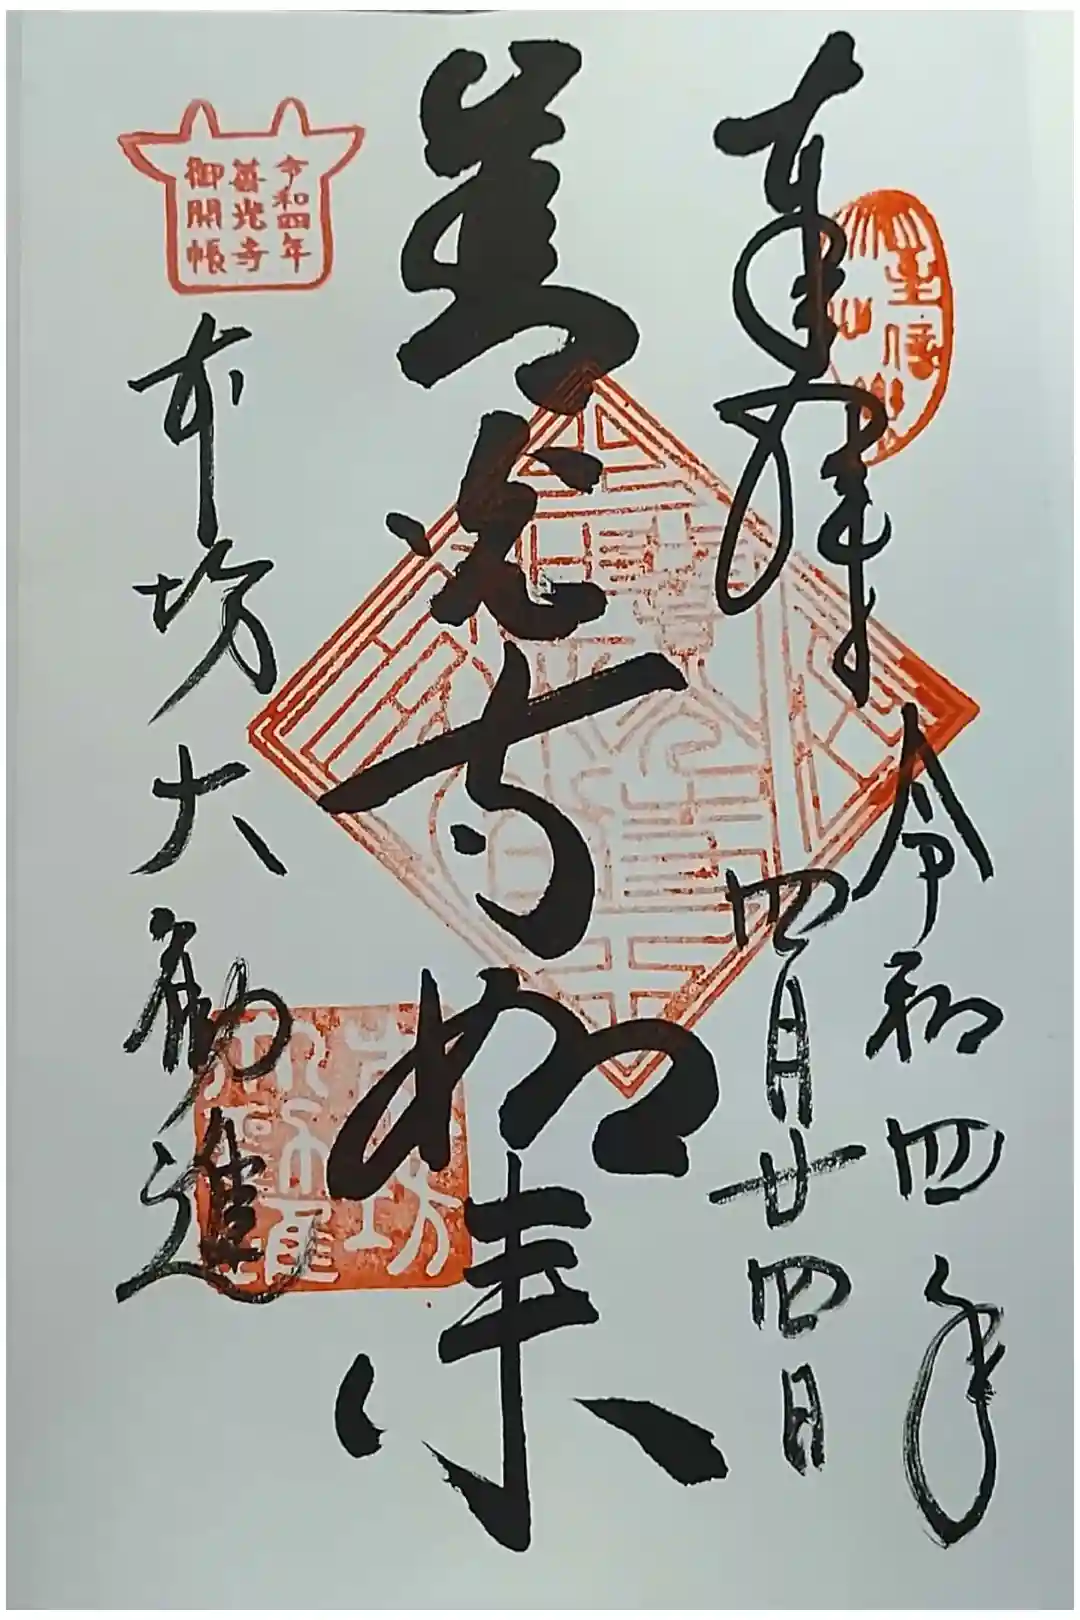 奉拝
令和四年
四月廿四日
善光寺如来
本坊大勧進
令和四年
善光寺
御開帳